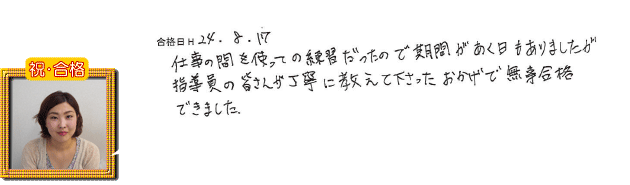 合格日H 24.8.17
仕事の間を使っての練習だったので期間があく日もありましたが
指導員の皆さんが丁寧に教えて下さったおかげで無事合格
できました.
祝・合格